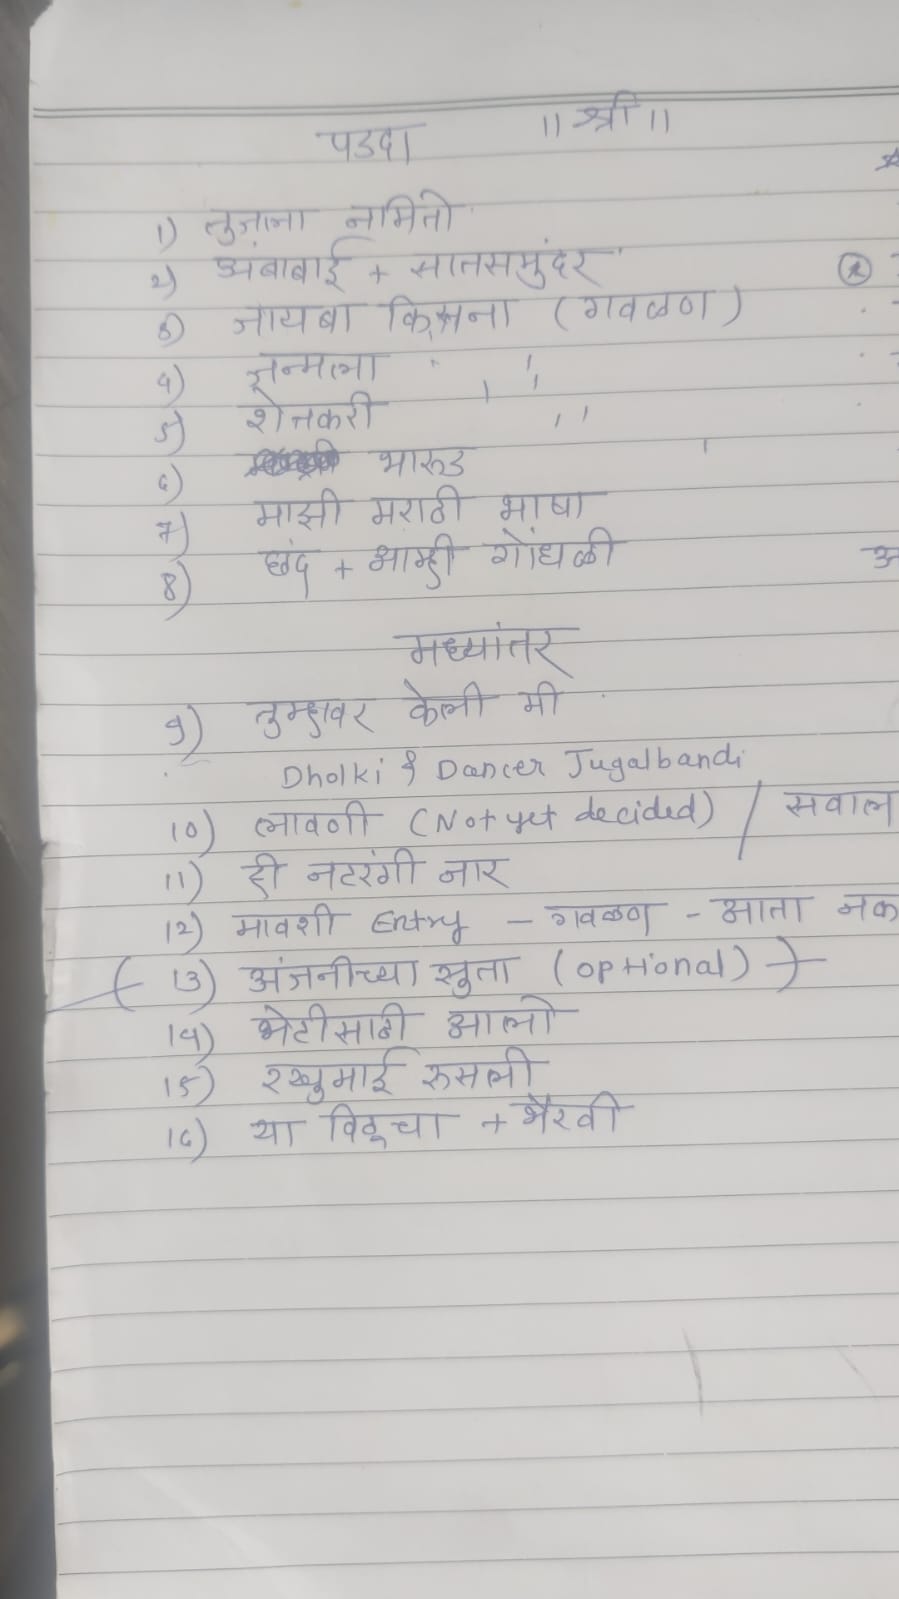 ॥ श्री ॥
पडदा
1) तुजला नमितो
2) अंबाबाई + सातसमुंदर
3) जायबा किसना (गवळण)
4) जन्मला
5) शेतकरी
6) भारुड
7) माझी मराठी भाषा
8) छंद + आम्ही गोंधळी
मध्यांतर
9) तुम्हावर केली मी
Dholki & Dancer Jugalbandi
10) लावणी (Not yet decided) / सवाल
11) ही नटरंगी नार
12) मावशी Entry - गवळण - आता नक
(13) अंजनीच्या सुता (optional))
14) भेटीसाठी आलो
15) रखुमाई रुसली
16) या विठूचा + भैरवी